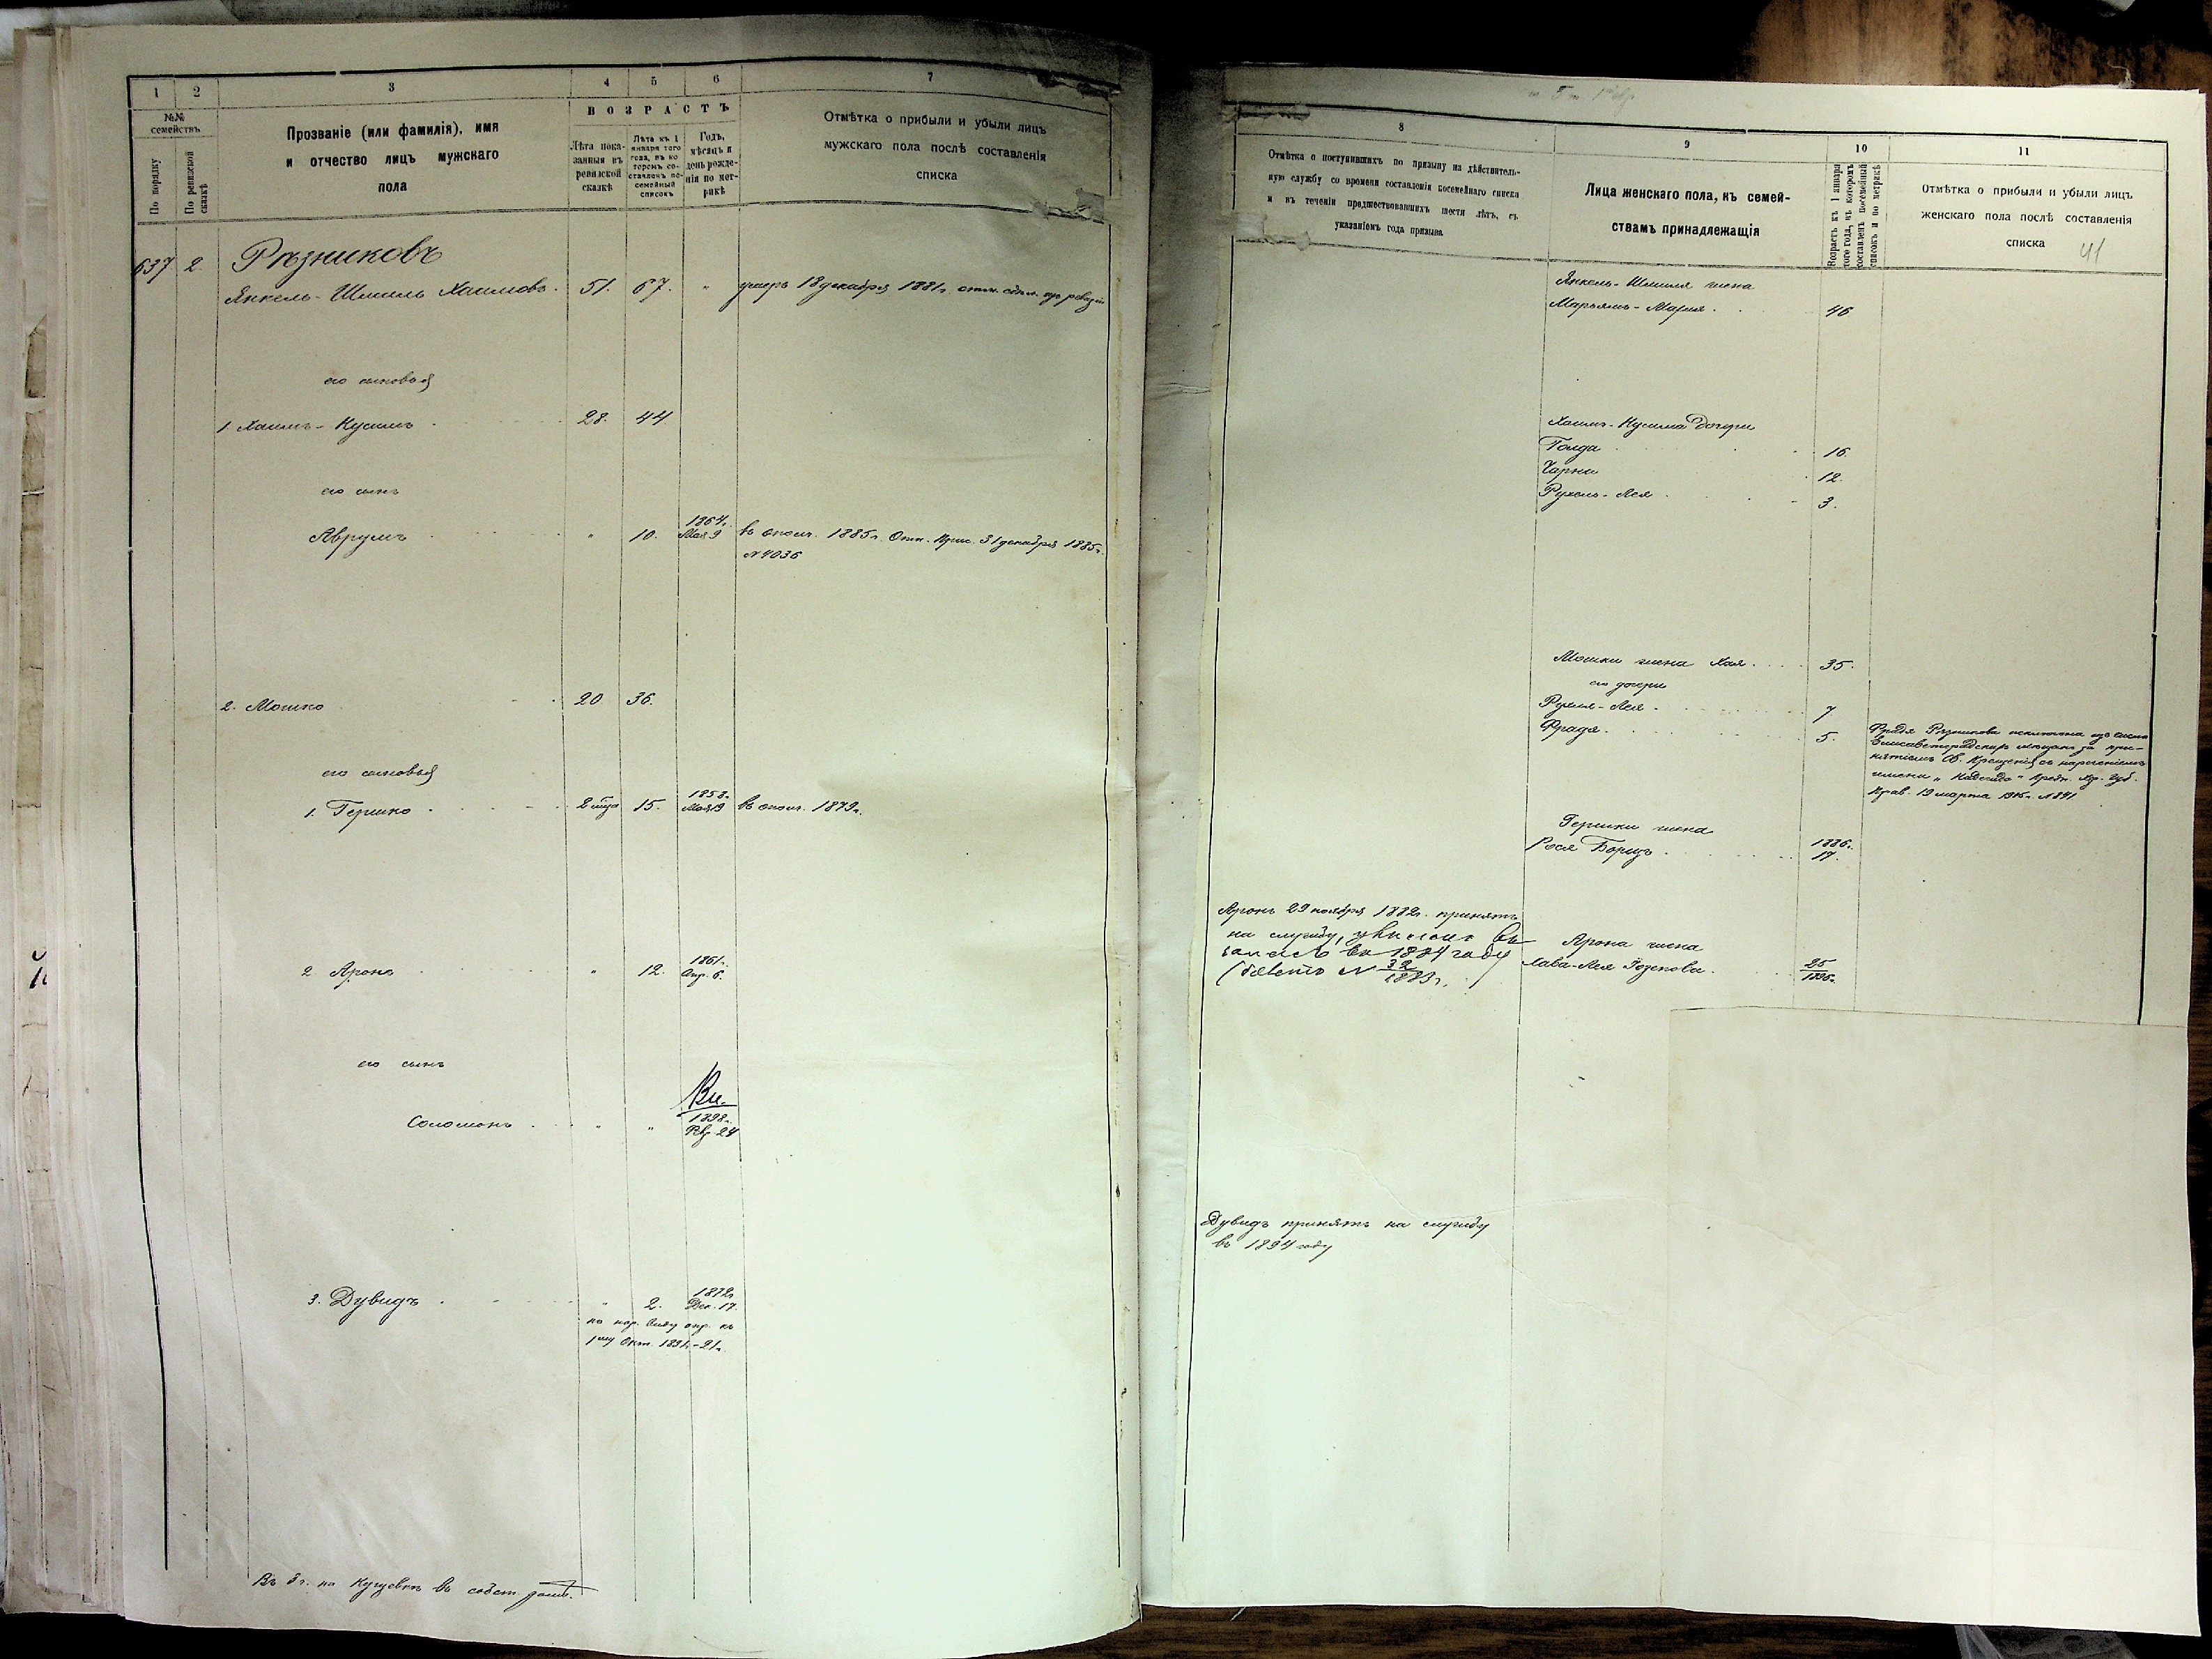 1 2 3 4 5 6 7
№№ семействъ
По порядку
По ревизской сказкѣ
Прозваніе (или фамилія), имя
и отчество лицъ мужскаго
пола
ВОЗРАСТЪ
Лѣта пока-
занныя въ
ревизской
сказкѣ
Лѣта къ 1
января того
года, въ ко
торомъ со-
ставленъ по-
семейный
списокъ
Годъ,
мѣсяцъ и
день рожде-
нія по мет-
рикѣ
Отмѣтка о прибыли и убыли лицъ
мужскаго пола послѣ составленія
списка
637 2. Рѣзниковъ
Янкель-Шмиль Хаимовъ. 51. 67. " умеръ 18 декабря 1881г.
его сыновья
1 Хаимъ-Нусимъ 28. 44
его сынъ
Аврумъ " 10. 1864г. Мая 9 въ опол. 1885г. Отн. Прис. 31 декабря 1885г.
№ 4036
2. Мошко 20 36.
его сыновья
1. Гершко 2 мца 15. 1858г. Мая 19 въ опол. 1879г.
2 Аронъ " 12. 1861г. Апр. 6.
его сынъ
Соломонъ " " 1898г. Фев. 24
3. Дувидъ " 2. 1872г. Дек. 17.
по нар. виду опр. къ
1му Окт. 1891г.-21г.
Въ 3 ч. на Кущевкѣ въ собст. домѣ.
8 9 10 11
Отмѣтка о поступившихъ по призыву на дѣйствитель-
ную службу со времени составленія посемейнаго списка
и въ теченіи предшествовавшихъ шести лѣтъ, съ
указаніемъ года призыва
Лица женскаго пола, къ семей-
ствамъ принадлежащія
Возрастъ къ 1 января
того года, въ которомъ
составленъ посемейный
списокъ и по метрикѣ
Отмѣтка о прибыли и убыли лицъ
женскаго пола послѣ составленія
списка
41
Янкель-Шмиля жена
Марьямъ-Марія 46
Хаимъ-Нусима дочери
Голда 16.
Чарна 12.
Рухель-Лея 3.
Мошки жена Хая 35.
его дочери
Рухля-Лея 7
Фрадя 5.
Фрадя Рѣзникова исключена изъ числа
Елисаветградскихъ мѣщанъ за при-
нятіемъ Св. Крещенія съ нареченіемъ
имени „Надежда"
Прав. 19 марта № 841
Гершки жена 1886г.
Рося Борщъ 17.
Аронъ 29 ноября 1882г. принятъ
на службу, уволенъ въ
запасъ въ 1884 году
(билетъ № 32/1883г.)
Арона жена
Хава-Лея Розенова 25/1895г.
Дувидъ принятъ на службу
въ 1894 году